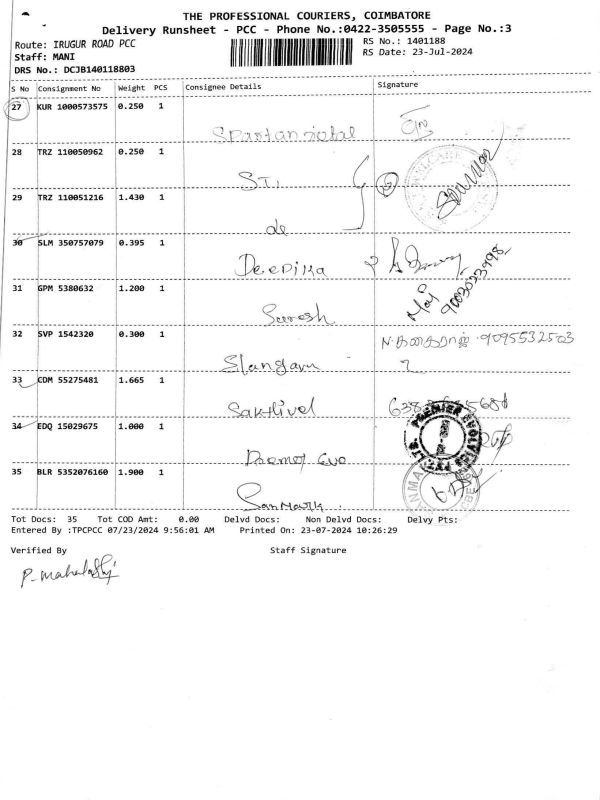 THE PROFESSIONAL COURIERS, COIMBATORE
Delivery Runsheet - PCC - Phone No.:0422-3505555 - Page No.:3
Route: IRUGUR ROAD PCC
RS No.: 1401188
Staff: MANI
RS Date: 23-Jul-2024
DRS No.: DCJB140118803
S No Consignment No Weight PCS Consignee Details Signature
27 KUR 1000573575 0.250 1
28 TRZ 110050962 0.250 1
STI
29 TRZ 110051216 1.430 1
do
30 SLM 350757079 0.395 1
Deepika
31 GPM 5380632 1.200 1
Suresh
9003023998
32 SVP 1542320 0.300 1
9095532503
33 CDM 55275481 1.665 1
Sakthivel
34 EDQ 15029675 1.000 1
PREMIER EVOLVICS PVT. LTD.
35 BLR 5352076160 1.900 1
Sanmark
Tot Docs: 35 Tot COD Amt: 0.00 Delvd Docs: Non Delvd Docs: Delvy Pts:
Entered By :TPCPCC 07/23/2024 9:56:01 AM Printed On: 23-07-2024 10:26:29
Verified By Staff Signature